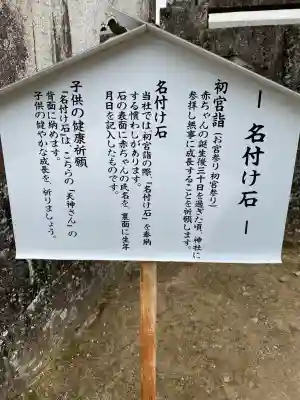 ― 名付け石 ―
初宮詣(お宮参り初宮参り)
赤ちゃんの誕生後三十日を過ぎた頃、神社に
参拝し無事に成長することを祈願します。
名付け石
当社では初宮詣の際、「名付け石」を奉納
する慣わしがあります。
石の表面に赤ちゃんの氏名を、裏面に生年
月日を記入したものです。
子供の健康祈願
「名付け石」は、こちらの「天神さん」の
背面に納めます。
子供の健やかな成長を、祈りましょう。